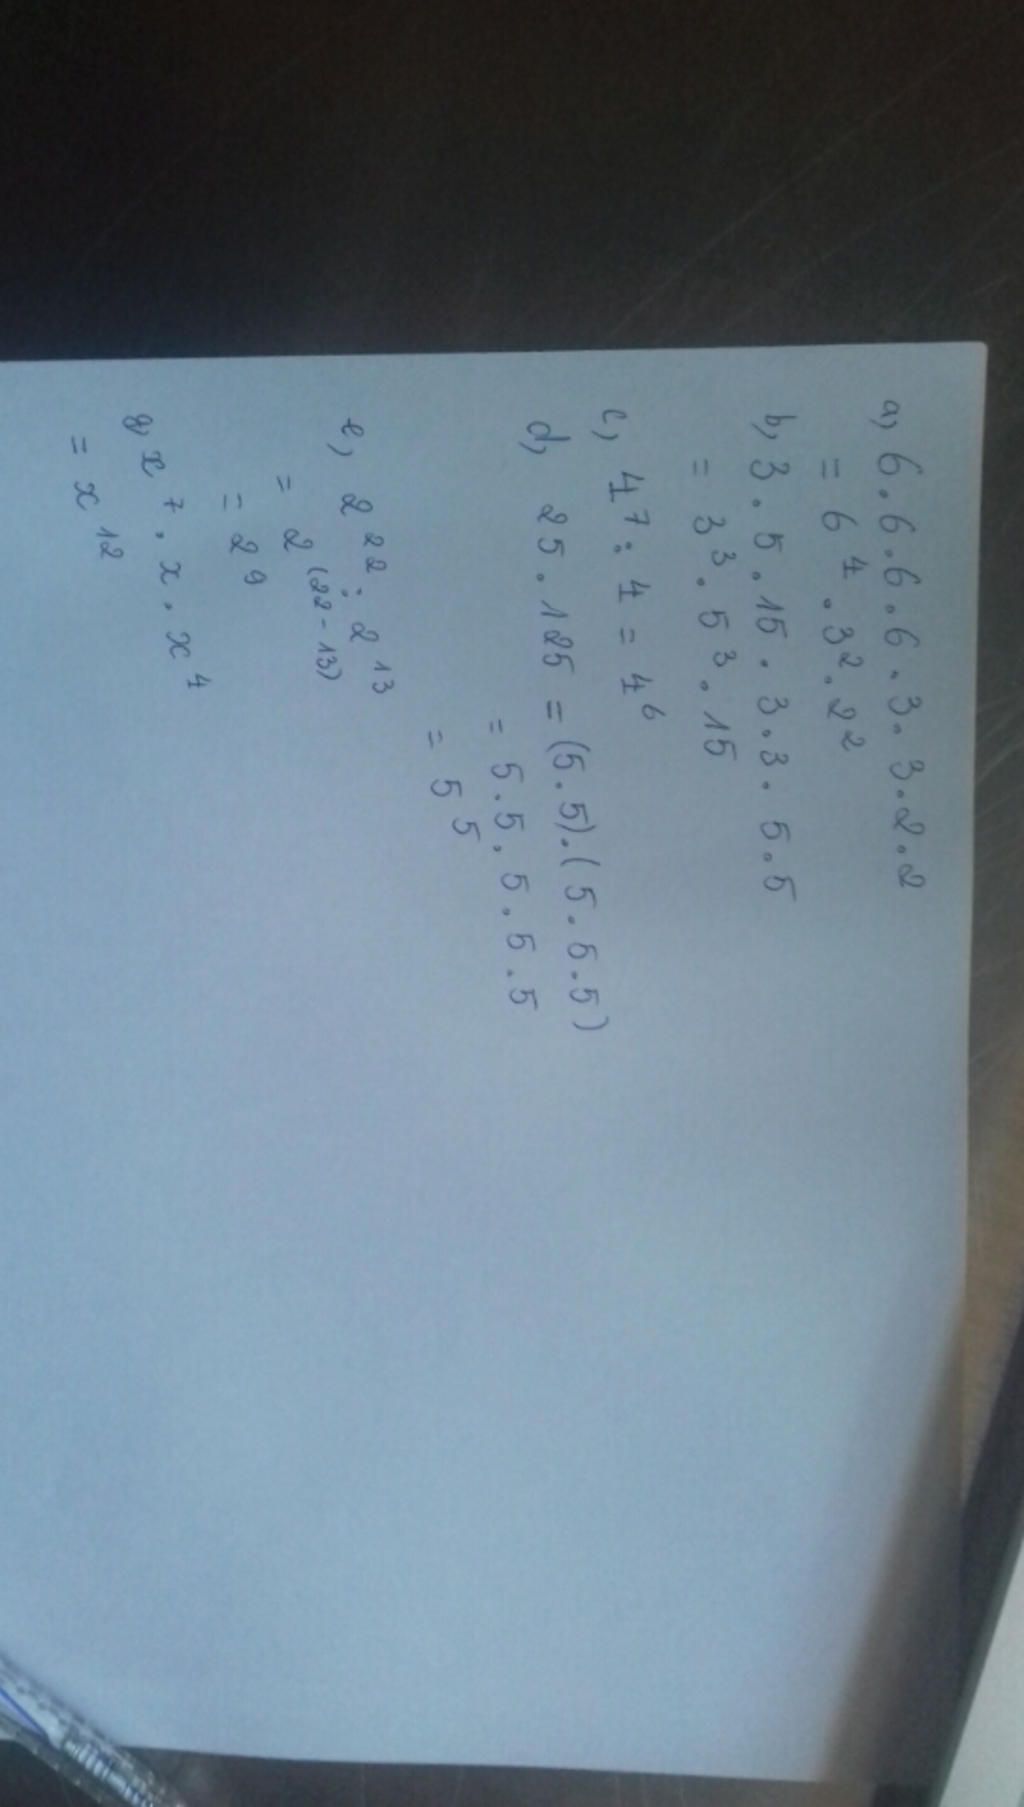 a, 6.6.6.6.3.3.2.2
= 6⁴.3².2²
b, 3.5.15.3.3.5.5
= 3³.5³.15
c, 4⁷:4 = 4⁶
d, 25.125 = (5.5).(5.5.5)
= 5.5.5.5.5
= 5⁵
e, 2²²:2¹³
= 2⁽²²⁻¹³⁾
= 2⁹
g, x⁷.x.x⁴
= x¹²